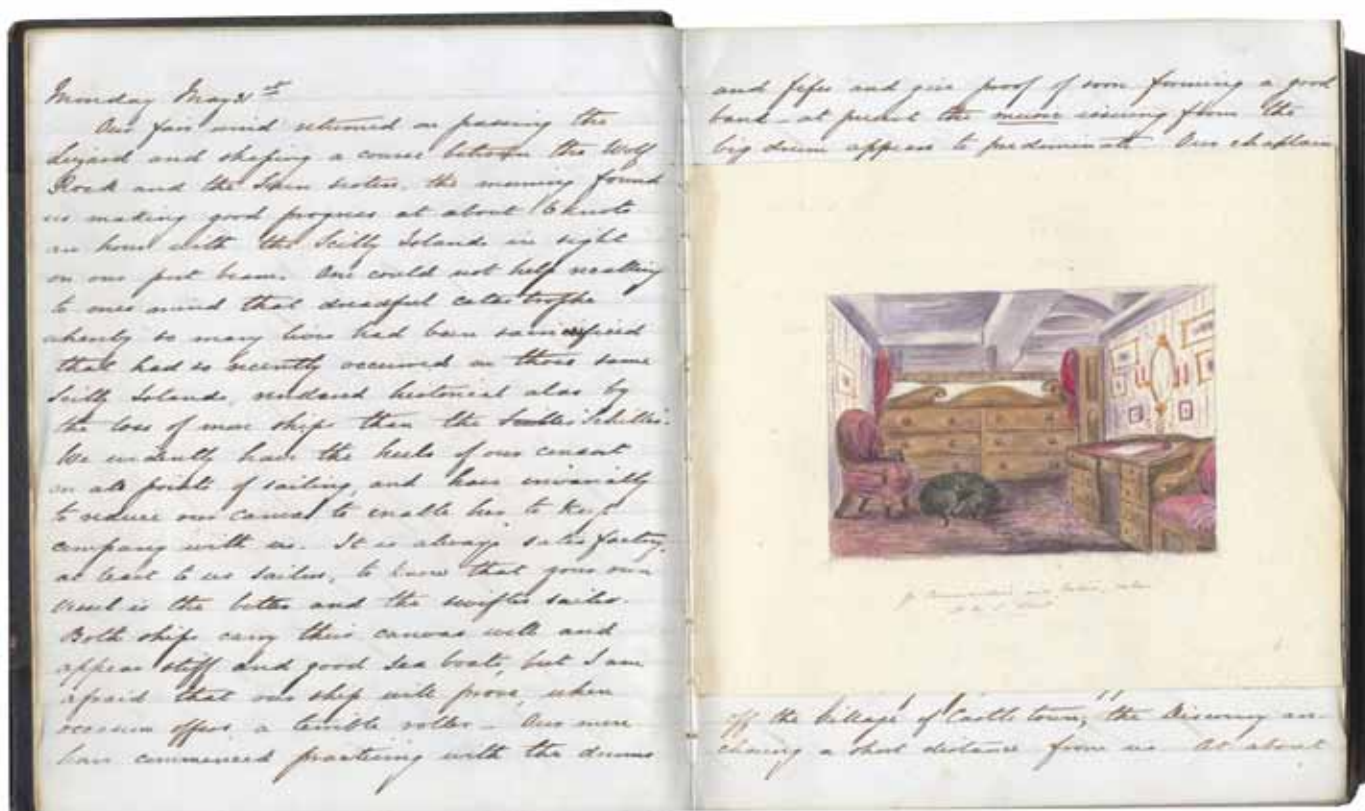 Monday May 31st
Our fair wind returned on passing the
Lizard and shaping a course between the Wolf
Rock and the Seven Stones, the morning found
us making good progress at about 6 knots
an hour with the Scilly Islands in sight
on our port beam. One could not help recalling
to ones mind that dreadful catastrophe
whereby so many lives had been sacrificed
that had so recently occurred on those same
Scilly Islands, rendered historical alas by
the loss of more ships than the "Schiller".
We evidently have the heels of our consort
on all points of sailing, and have invariably
to reduce our canvas to enable her to keep
company with us. It is always satisfactory,
at least to us sailors, to know that your own
vessel is the better and the swifter sailer.
Both ships carry their canvas well and
appear stiff and good sea boats, but I am
afraid that our ship will prove, when
occasion offers, a terrible roller – Our men
have commenced practicing with the drums
and fifes and give proof of soon forming a good
band – at present the music issuing from the
big drum appears to predominate Our chaplain
off the village of "Castletown," the Discovery an-
choring a short distance from us At about